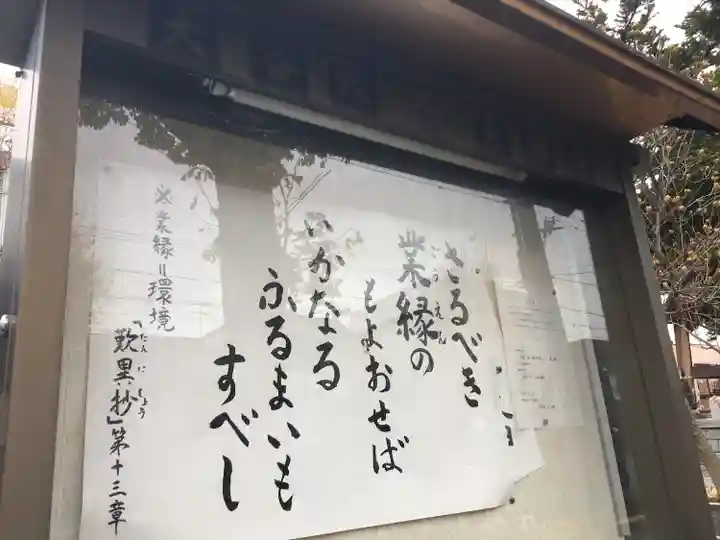 さるべき
業縁の
ごうえん
もよおせば
いかなる
ふるまいも
すべし
※業縁=環境
「歎異抄」第十三章
たんにしょう